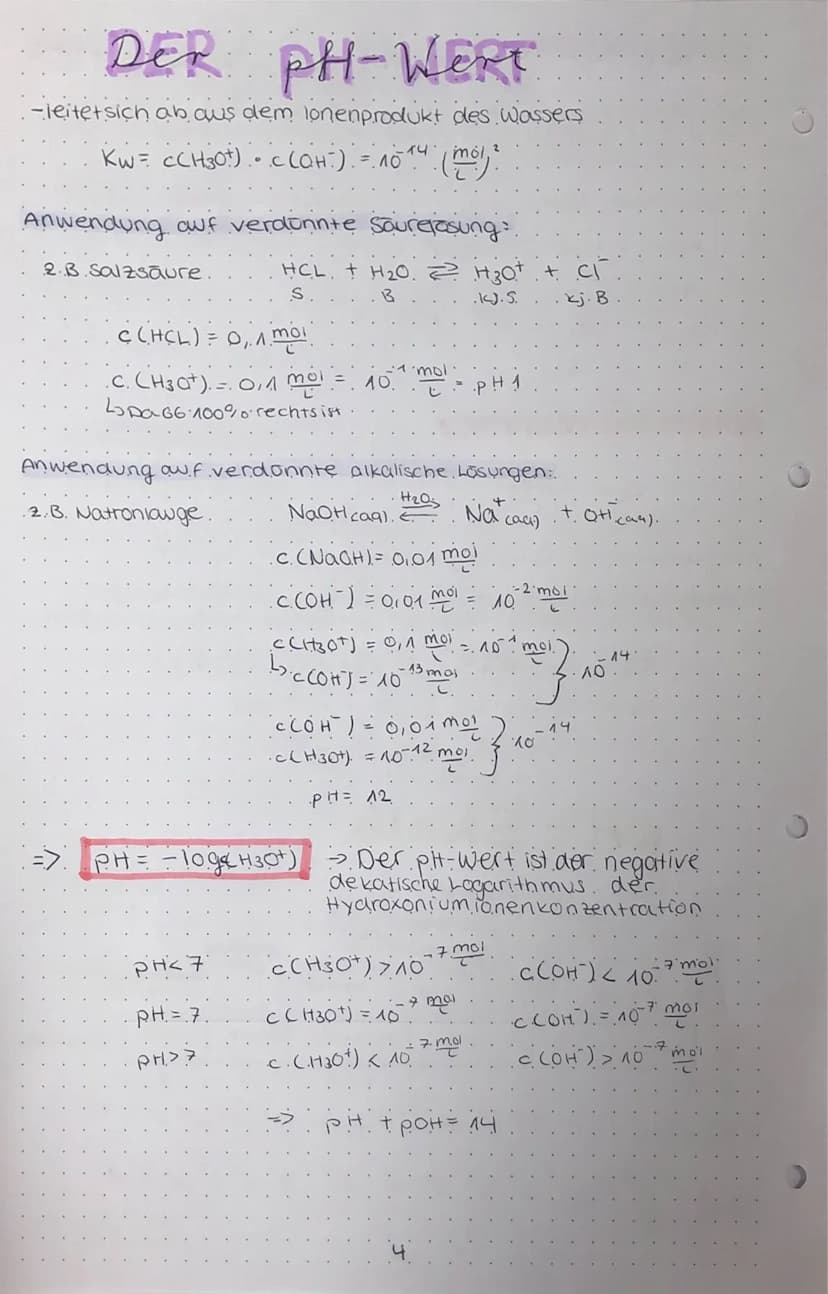 Der pH-Wert
-leitet sich ab aus dem Ionenprodukt des Wassers
Kw= c(H3O⁺) · c(OH⁻) = 10⁻¹⁴ (mol/L)²
Anwendung auf verdünnte Säurelösung:
z.B. Salzsäure HCL + H2O ⇌ H3O⁺ + Cl⁻
S B kj.S. kj.B
c(HCL) = 0,1 mol/L
c(H3O⁺) = 0,1 mol/L = 10⁻¹ mol/L = pH 1
↳Da GG 100% rechts ist
Anwendung auf verdünnte alkalische Lösungen:
z.B. Natronlauge NaOH(aq) ⇌ H2O Na⁺(aq) + OH⁻(aq)
c(NaOH) = 0,01 mol/L
c(OH⁻) = 0,01 mol/L = 10⁻² mol/L
c(H3O⁺) = 0,1 mol/L = 10⁻¹ mol/L } 10⁻¹⁴
↳ c(OH⁻) = 10⁻¹³ mol/L
c(OH⁻) = 0,01 mol/L } 10⁻¹⁴
c(H3O⁺) = 10⁻¹² mol/L
pH = 12
=> pH = -log c(H3O⁺) → Der pH-Wert ist der negative
dekatische Logarithmus der
Hydroxoniumionenkonzentration
pH < 7 c(H3O⁺) > 10⁻⁷ mol/L c(OH⁻) < 10⁻⁷ mol/L
pH = 7 c(H3O⁺) = 10⁻⁷ mol/L c(OH⁻) = 10⁻⁷ mol/L
pH > 7 c(H3O⁺) < 10⁻⁷ mol/L c(OH⁻) > 10⁻⁷ mol/L
=> pH + pOH = 14
4